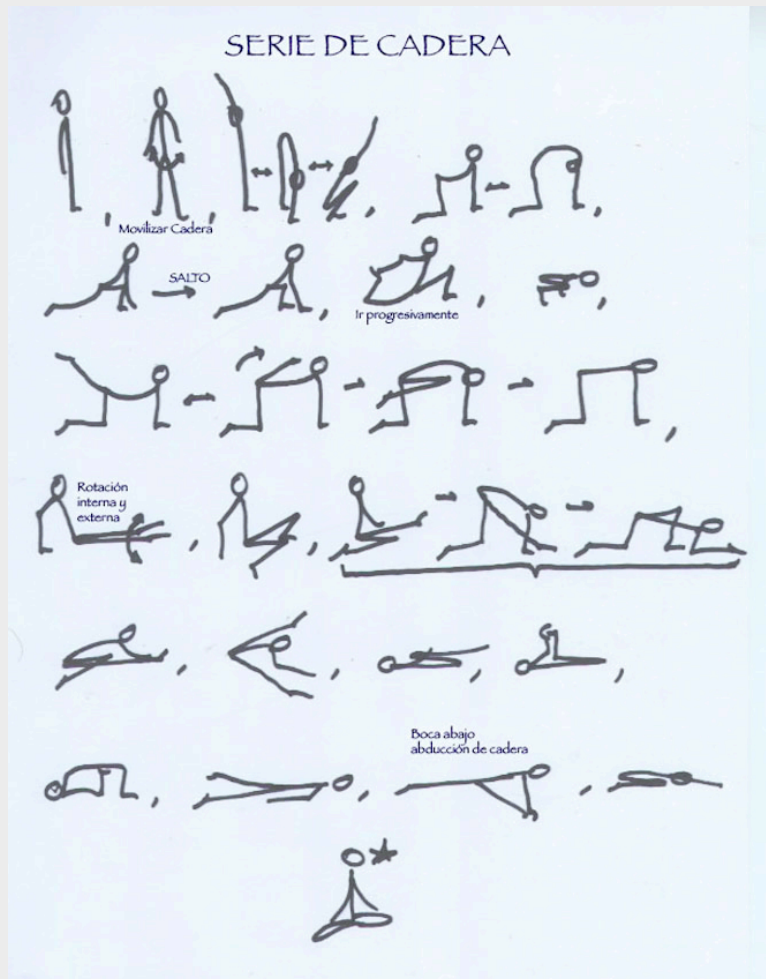 SERIE DE CADERA
Movilizar Cadera
SALTO
Ir progresivamente
Rotación
interna y
externa
Boca abajo
abducción de cadera